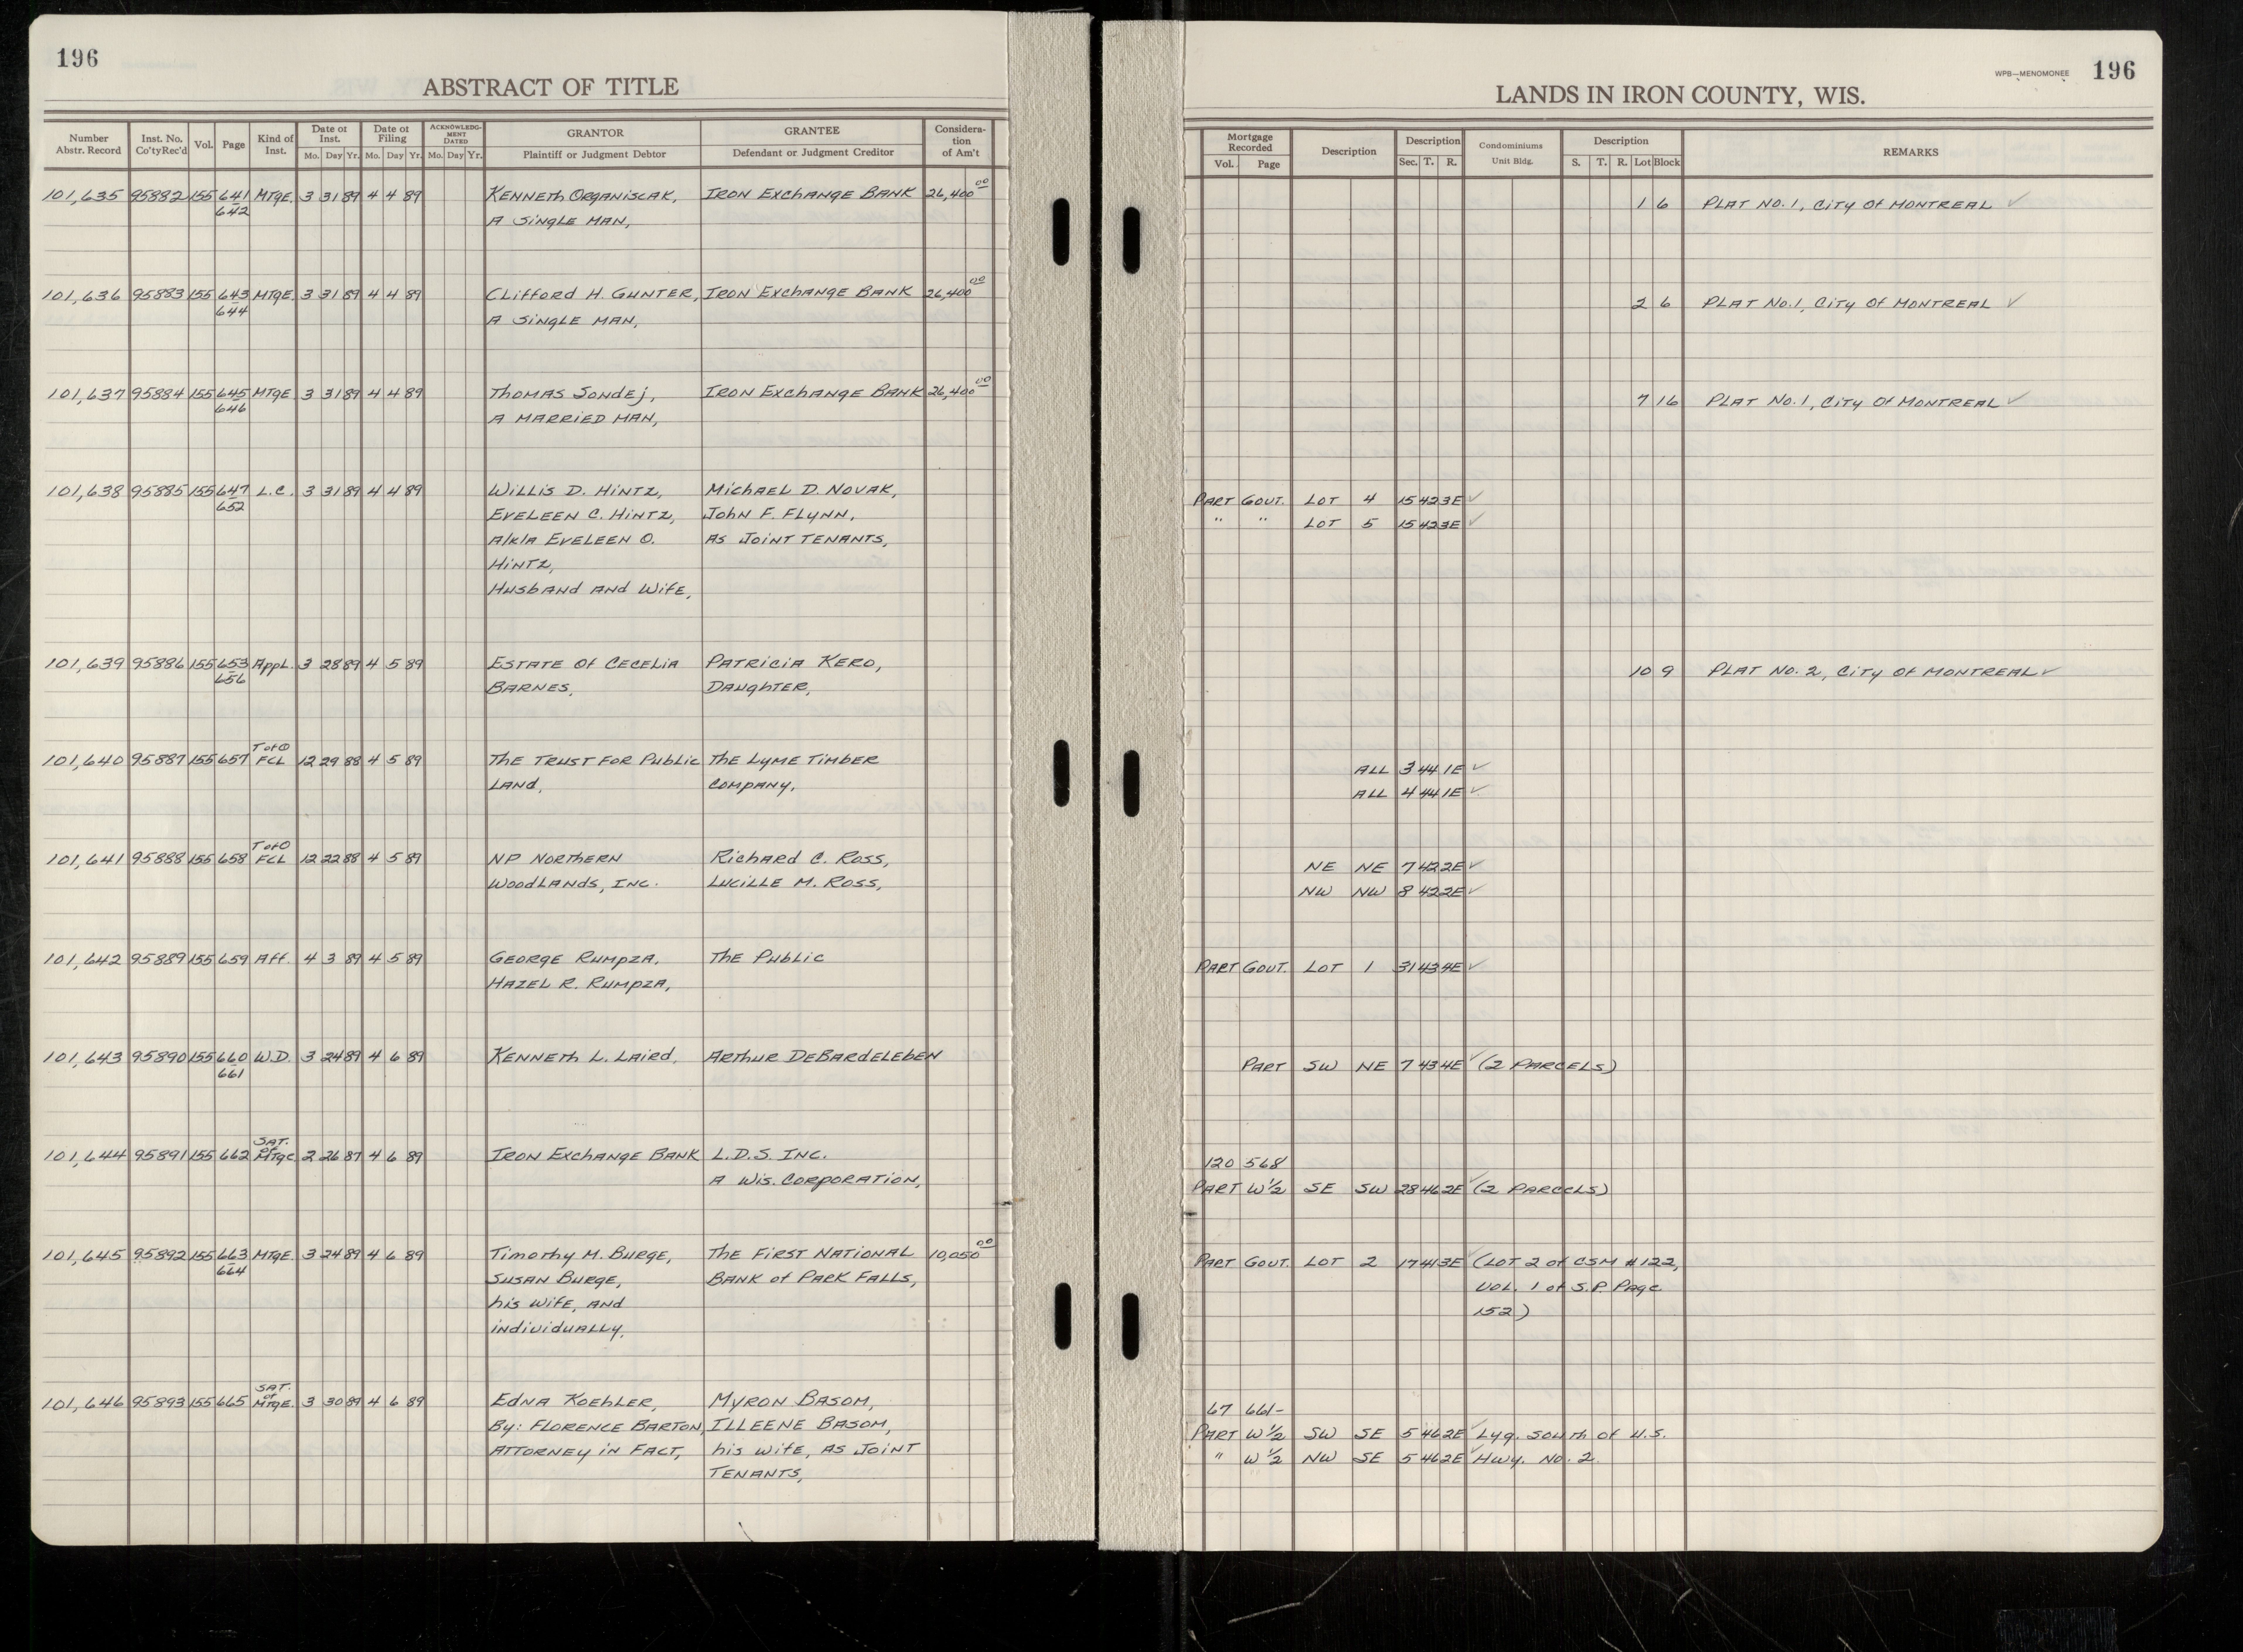 196
ABSTRACT OF TITLE
Number Abstr. Record | Inst. No. Co'ty Rec'd | Vol. | Page | Kind of Inst. | Date of Inst. Mo. Day Yr. | Date of Filing Mo. Day Yr. | ACKNOWLEDGMENT DATED Mo. Day Yr. | GRANTOR Plaintiff or Judgment Debtor | GRANTEE Defendant or Judgment Creditor | Consideration of Am't
101,635 95882 155 641 MTGE. 3 31 89 4 4 89 KENNETH ORGANISCAK, IRON EXCHANGE BANK 26,400 00
642 A SINGLE MAN,
101,636 95883 155 643 MTGE. 3 31 89 4 4 89 CLIFFORD H. GUNTER, IRON EXCHANGE BANK 26,400 00
644 A SINGLE MAN,
101,637 95884 155 645 MTGE. 3 31 89 4 4 89 THOMAS SONDEJ, IRON EXCHANGE BANK 26,400 00
646 A MARRIED MAN,
101,638 95885 155 647 L.C. 3 31 89 4 4 89 WILLIS D. HINTZ, MICHAEL D. NOVAK,
652 EVELEEN C. HINTZ, JOHN F. FLYNN,
A/K/A EVELEEN O. AS JOINT TENANTS,
HINTZ,
HUSBAND AND WIFE,
101,639 95886 155 653 APPL. 3 28 89 4 5 89 ESTATE OF CECELIA PATRICIA KERO,
656 BARNES, DAUGHTER,
T of O
101,640 95887 155 657 FCL 12 29 88 4 5 89 THE TRUST FOR PUBLIC THE LYME TIMBER
LAND, COMPANY,
T of O
101,641 95888 155 658 FCL 12 22 88 4 5 89 NP NORTHERN RICHARD C. ROSS,
WOODLANDS, INC. LUCILLE M. ROSS,
101,642 95889 155 659 AFF. 4 3 89 4 5 89 GEORGE RUMPZA, THE PUBLIC
HAZEL R. RUMPZA,
101,643 95890 155 660 W.D. 3 24 89 4 6 89 KENNETH L. LAIRD, ARTHUR DEBARDELEBEN
661
SAT. of
101,644 95891 155 662 MTGE 2 26 87 4 6 89 IRON EXCHANGE BANK L.D.S. INC.
A WIS. CORPORATION,
101,645 95892 155 663 MTGE. 3 24 89 4 6 89 TIMOTHY M. BURGE, THE FIRST NATIONAL 10,050 00
664 SUSAN BURGE, BANK OF PARK FALLS,
HIS WIFE, AND
INDIVIDUALLY,
SAT. of
101,646 95893 155 665 MTGE. 3 30 89 4 6 89 EDNA KOEHLER, MYRON BASOM,
BY: FLORENCE BARTON, ILLEENE BASOM,
ATTORNEY IN FACT, HIS WIFE, AS JOINT
TENANTS,
WPB—MENOMONEE 196
LANDS IN IRON COUNTY, WIS.
Mortgage Recorded Vol. Page | Description | Description Sec. T. R. | Condominiums Unit Bldg. | Description S. T. R. Lot Block | REMARKS
1 6 PLAT NO. 1, CITY OF MONTREAL ✓
2 6 PLAT NO. 1, CITY OF MONTREAL ✓
7 16 PLAT NO. 1, CITY OF MONTREAL ✓
PART GOVT. LOT 4 15 42 3E ✓
" " LOT 5 15 42 3E ✓
10 9 PLAT NO. 2, CITY OF MONTREAL ✓
ALL 3 44 1E ✓
ALL 4 44 1E ✓
NE NE 7 42 2E ✓
NW NW 8 42 2E ✓
PART GOVT. LOT 1 31 43 4E ✓
PART SW NE 7 43 4E ✓ (2 PARCELS)
120 568
PART W½ SE SW 28 46 2E ✓ (2 PARCELS)
PART GOVT. LOT 2 17 41 3E ✓ (LOT 2 OF CSM #122,
VOL. 1 OF S.P. PAGE
152)
67 661-
PART W½ SW SE 5 46 2E ✓ LYG. SOUTH OF U.S.
" W½ NW SE 5 46 2E ✓ HWY. NO. 2